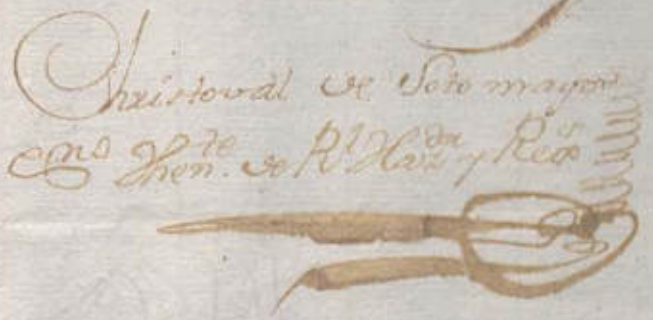 Christoval de Sotomayor
Essno Then.te de Rl Haz.da y Regos